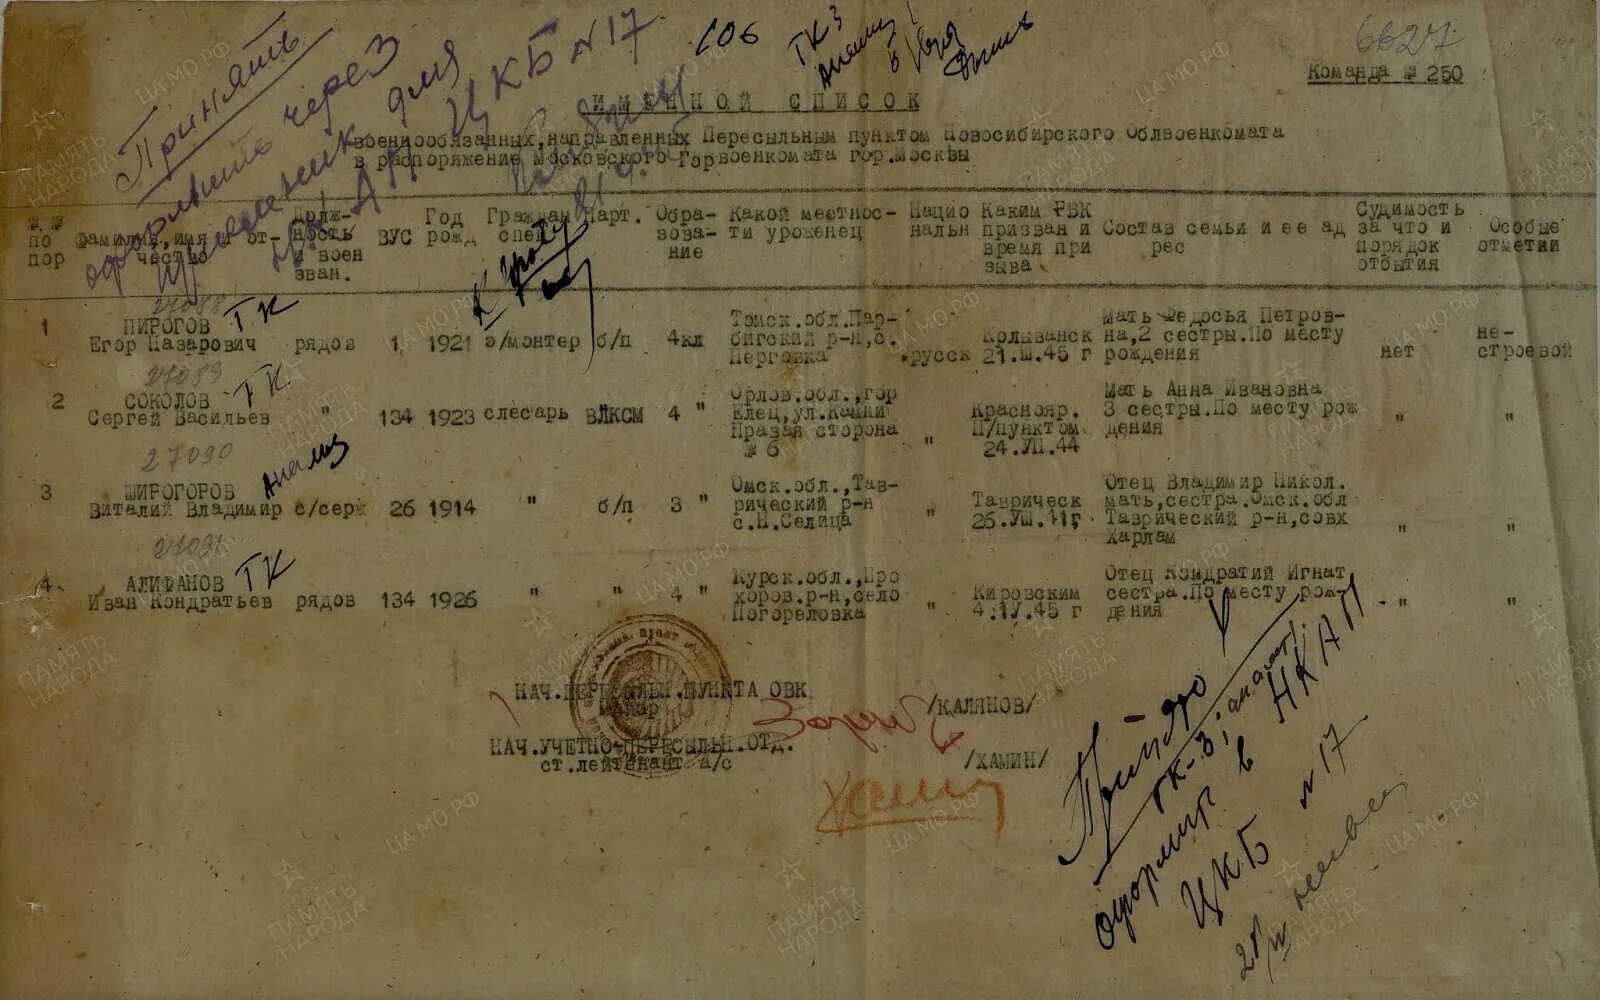 106
ТК 3
6627
Команда № 250
Принять
через
для
ЦКБ N 17
ИМЕННОЙ СПИСОК
военнообязанных,направленных Пересыльным пунктом Новосибирского Облвоенкомата
в распоряжение Московского Горвоенкомата гор.Москвы
№ №
по
пор
Фамилия,имя и от-
чество
Долж-
ность
и воен
зван.
ВУС
Год
рожд
Граждан
спец
Парт.
Обра-
зова-
ние
Какой местнос-
ти уроженец
Нацио
нальн
Каким РВК
призван и
время при
зыва
Состав семьи и ее ад
рес
Судимость
за что и
порядок
отбытия
Особые
отметки
27088
ТК
1 ПИРОГОВ
Егор Назарович рядов 1 1921 э/монтер б/п 4кл
Томск.обл.Пар-
бигский р-н,с.
Перговка
русск
Колыванск
21.Ш.45 г
Мать Федосья Петров-
на,2 сестры.По месту
рождения
нет
не-
строевой
27089
ТК
2 СОКОЛОВ
Сергей Васильев " 134 1923 слесарь ВЛКСМ 4 "
Орлов.обл.,гор
Елец,ул.Камни
Правая сторона
№ 6
"
Краснояр.
П/пунктом
24.УП.44
Мать Анна Ивановна
3 сестры.По месту рож
дения
" "
27090
Анализ
3 ШИРОГОРОВ
Виталий Владимир с/серж 26 1914 " б/п 3 "
Омск.обл.,Тав-
рический р-н
с.Н.Селица
"
Таврическ
26.УШ.41г
Отец Владимир Никол.
мать,сестра.Омск.обл
Таврический р-н,совх
Харлам
" "
27091
ТК
4 АЛИФАНОВ
Иван Кондратьев рядов 134 1926 " " 4 "
Курск.обл.,Про
хоров.р-н,село
Погореловка
"
Кировским
4.1У.45 г
Отец Кондратий Игнат
сестра.По месту рож-
дения
" "
НАЧ.ПЕРЕСЫЛЬН.ПУНКТА ОВК
Майор
/КАЛЯНОВ/
НАЧ.УЧЕТНО-ПЕРЕСЫЛЬН.ОТД.
ст.лейтенант а/с
/ХАМИН/
ТК-3,
НКАП
в
ЦКБ N 17
ЦА МО РФ
ПАМЯТЬ
НАРОДА